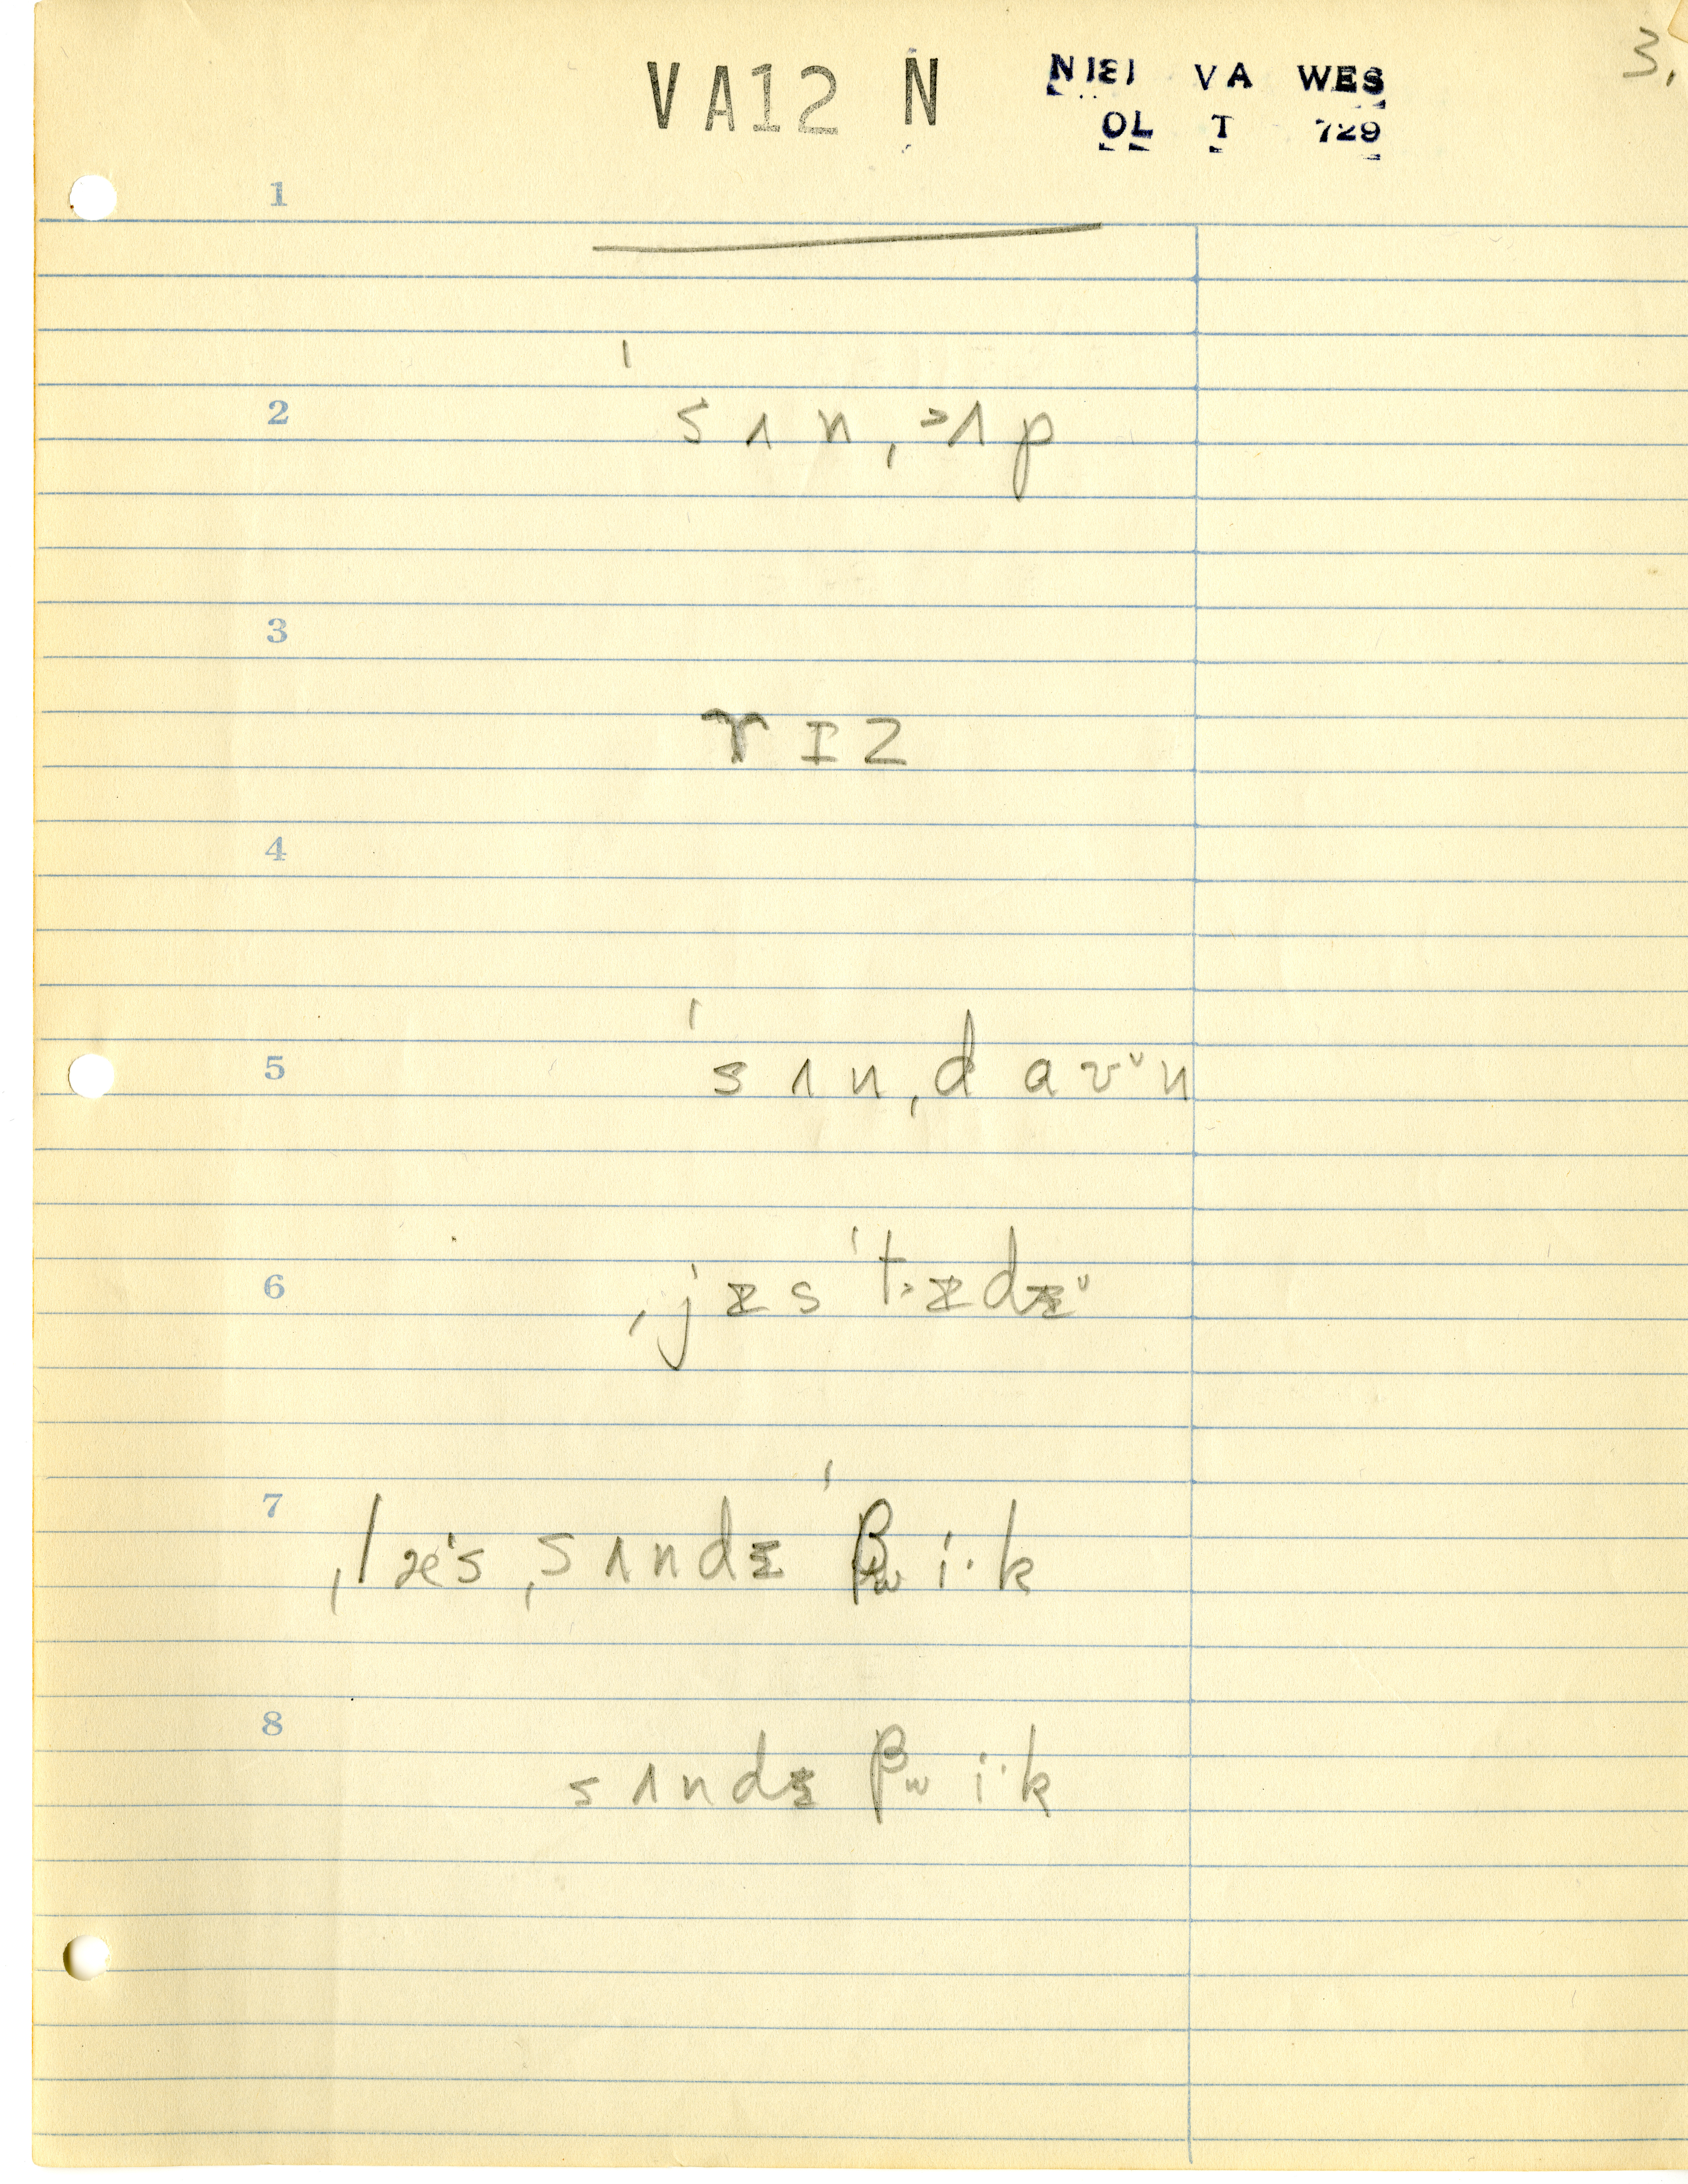 3.
VA12 N
N181 VA WES
OL T 729
1
2 ˈsʌn,˃ʌp
3 rɪz
4
5 ˈsʌn,daʊᵛn
6 ,jɪsˈt˃ɪdɪᵛ
7 ,læˈs ,sʌndɪ ˈβwi·k
8 sʌndɪ βwi·k